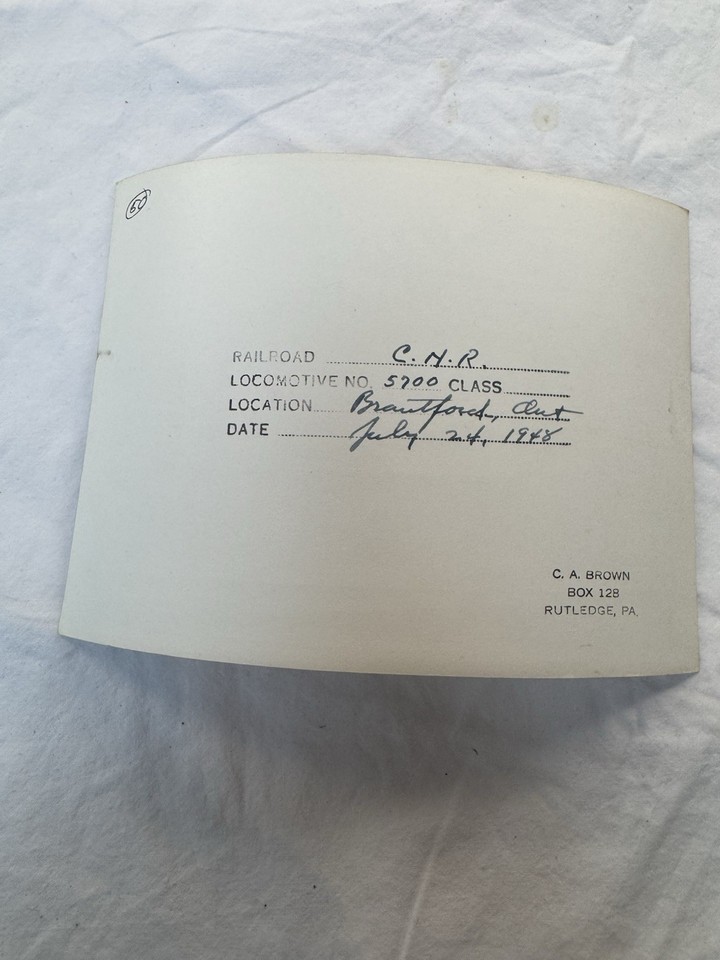 60
RAILROAD C.N.R.
LOCOMOTIVE NO. 5700 CLASS
LOCATION Brantford, Ont
DATE July 24, 1948
C. A. BROWN
BOX 128
RUTLEDGE, PA.